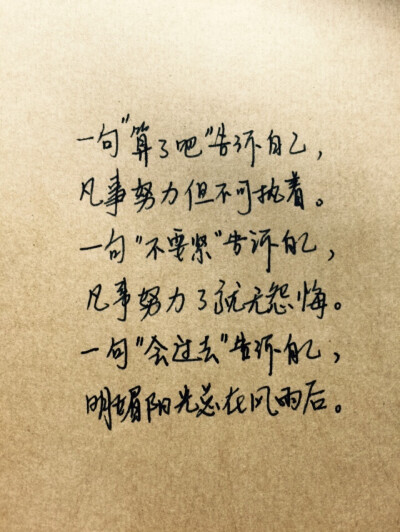 一句“算了吧”告诉自己，
凡事努力但不可执着。
一句“不要紧”告诉自己，
凡事努力了就无怨悔。
一句“会过去”告诉自己，
明媚阳光总在风雨后。